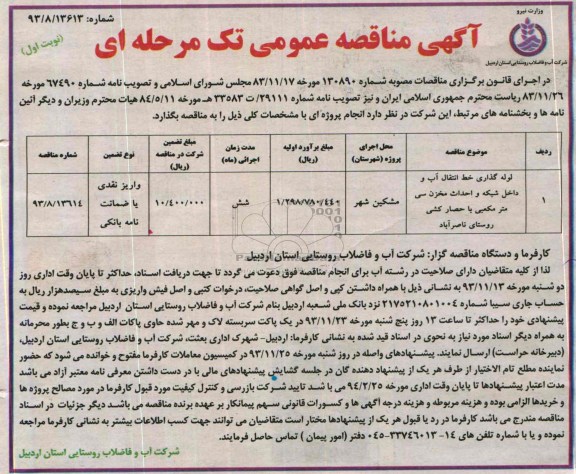 وزارت نیرو
شماره: ۹۳/۸/۱۳۶۱۳
آگهی مناقصه عمومی تک مرحله ای
(نوبت اول)
شرکت آب و فاضلاب روستایی استان اردبیل
در اجرای قانون برگزاری مناقصات مصوبه شماره ۱۳۰۸۹۰ مورخه ۸۳/۱۱/۱۷ مجلس شورای اسلامی و تصویب نامه شماره ۶۷۴۹۰ مورخه
۸۳/۱۱/۲۶ ریاست محترم جمهوری اسلامی ایران و نیز تصویب نامه شماره ۲۹۱۱۱/ت ۳۳۵۸۳ هـ مورخه ۸۴/۵/۱۱ هیات محترم وزیران و دیگر آئین
نامه ها و بخشنامه های مرتبط، این شرکت در نظر دارد انجام پروژه ای با مشخصات کلی ذیل را به مناقصه بگذارد.
ردیف | موضوع مناقصه | محل اجرای پروژه (شهرستان) | مبلغ برآورد اولیه (ریال) | مدت زمان اجرائی (ماه) | مبلغ تضمین شرکت در مناقصه (ریال) | نوع تضمین | شماره مناقصه
۱ | لوله گذاری خط انتقال آب و داخل شبکه و احداث مخزن سی متر مکعبی با حصار کشی روستای ناصرآباد | مشکین شهر | ۱/۲۹۸/۷۸۰/۴۴۰ | شش | ۱۰/۴۰۰/۰۰۰ | واریز نقدی یا ضمانت نامه بانکی | ۹۳/۸/۱۳۶۱۴
کارفرما و دستگاه مناقصه گزار: شرکت آب و فاضلاب روستایی استان اردبیل
لذا از کلیه متقاضیان دارای صلاحیت در رشته آب برای انجام مناقصه فوق دعوت می گردد تا جهت دریافت اسناد، حداکثر تا پایان وقت اداری روز
دو شنبه مورخه ۹۳/۱۱/۱۳ به نشانی ذیل با همراه داشتن کپی و اصل گواهی صلاحیت، درخوات کتبی و اصل فیش واریزی به مبلغ سیصدهزار ریال به
حساب جاری سیبا شماره ۲۱۷۵۲۱۰۸۰۱۰۰۴ نزد بانک ملی شعبه اردبیل بنام شرکت آب و فاضلاب روستایی استان اردبیل مراجعه نموده و قیمت
پیشنهادی خود را حداکثر تا ساعت ۱۳ روز پنج شنبه مورخه ۹۳/۱۱/۲۳ در یک پاکت سربسته لاک و مهر شده حاوی پاکات الف و ب و ج بطور محرمانه
به همراه دیگر اسناد مورد نیاز به نحوی در اسناد قید شده به نشانی کارفرما: اردبیل- شهرک اداری بعثت، شرکت آب و فاضلاب روستایی استان اردبیل،
(دبیرخانه حراست) ارسال نمایند. پیشنهادهای واصله در روز شنبه مورخه ۹۳/۱۱/۲۵ در کمیسیون معاملات کارفرما مفتوح و خوانده می شود که حضور
نماینده مطلع تام الاختیار از طرف هر یک از پیشنهاد دهنده گان در جلسه گشایش پیشنهادهای مالی با در دست داشتن معرفی نامه معتبر آزاد می باشد
مدت اعتبار پیشنهادها تا پایان وقت اداری مورخه ۹۴/۲/۲۵ می با شد تایید شرکت بازرسی و کنترل کیفیت مورد قبول کارفرما در مورد مصالح پروژه ها
و خریدها الزامی بوده و هزینه مربوطه و هزینه درجه آگهی ها و کسورات قانونی سهم پیمانکار بر عهده برنده مناقصه می باشد دیگر جزئیات در اسناد
مناقصه مندرج می باشد کارفرما در رد یا قبول هر یک از پیشنهادها مختار است متقاضیان می توانند جهت کسب اطلاعات بیشتر به نشانی کارفرما مراجعه
نموده و یا با شماره تلفن های ۱۴- ۳۳۷۴۶۰۱۳-۰۴۵ دفتر (امور پیمان) تماس حاصل فرمایند.
شرکت آب و فاضلاب روستایی استان اردبیل